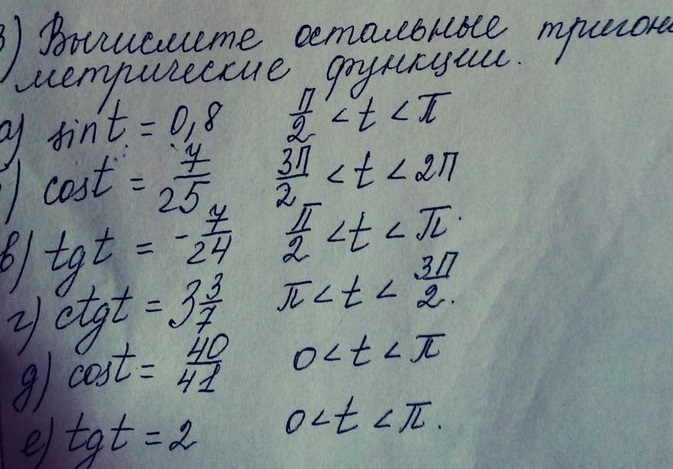 3) Вычислите остальные тригоно
метрические функции.
а) sin t = 0,8 π/2 < t < π
) cos t = 7/25 3π/2 < t < 2π
в) tg t = -7/24 π/2 < t < π.
г) ctg t = 3 3/7 π < t < 3π/2.
д) cos t = 40/41 0 < t < π
е) tg t = 2 0 < t < π.